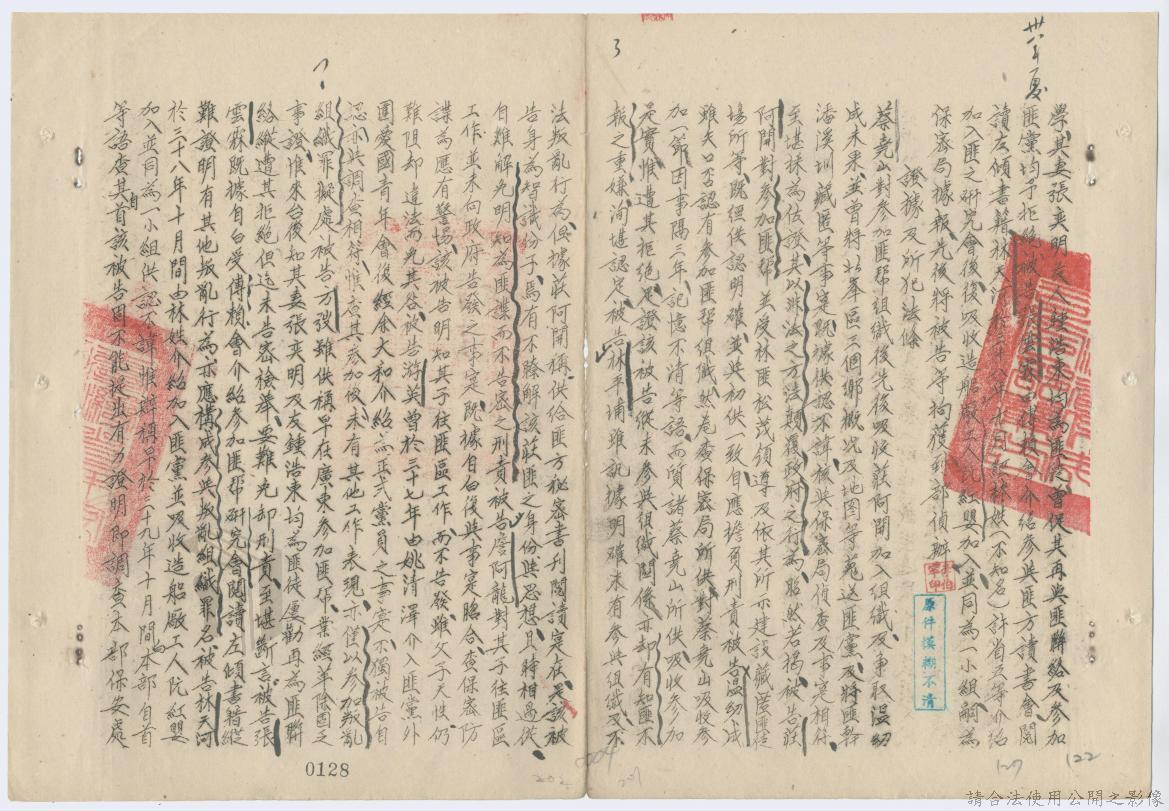 卅八年夏
學其妻張奕明友人鍾浩東均為匪徒會促其再與匪聯絡及參加
匪黨均予拒絕被告張雲霖由傅桡會介紹參與匪方讀書會閱
讀左傾書籍林天河於三十八年十月經林姓(不知名)許省五等介紹
加入匪之研究會後復吸收造船廠工人阮紅嬰加入並同為一小組嗣為
保密局據報先後將被告等拘獲到部偵辦
證據及所犯法條
蔡堯山對參加匪幫組織後先後吸收莊阿開加入組織及爭取溫幼
成未果並曾將北峯區三個鄉概況及地图等蒐送匪黨及將匪幹
潘溪圳藏匿等事實既據供認不諱核與保密局偵查及事實相符
至堪採為佐證其以非法之方法顛覆政府之行為昭然若揭被告莊
阿開對參加匪幫並受林匪松茂領導及依其所示建設藏匿匪徒
場所等既經供認明確並與初供一致自應擔負刑責被告溫幼成
雖夫口否認有參加匪幫組織然卷查保密局所供對蔡堯山吸收參
加一節因事隔三年記憶不清等語而質諸蔡堯山所供吸收參加
是實惟遭其拒絕足證該被告縱未參與組織關係亦却有知匪不
報之事嫌洵堪認定被告林平埔雖訊據明確未有參與組織及不
法叛亂行為但據莊阿開稱供給匪方秘密書刊閱讀實在是該被
告身為智識分子焉有不瞭解該莊匪之身份與思想且時相過從
自難解免明知為匪諜而不告密之刑責被告詹阿龍對其子往匪區
工作並未向政府告發之事實既據自白後與事實昭合查保密防
諜為應有警惕該被告明知其子往匪區工作而不告發雖父子天性仍
難阻却違法而免其咎被告游英曾於三十七年由姚清澤介入匪黨外
圍愛國青年會後經余大和介紹為正式黨員之事實不獨被告自
認亦與調查相符惟查其參加後未有其他工作表現亦僅以參加叛亂
組織罪擬處被告方弢雖供稱早在廣東參加匪幫業經革除固乏
事證惟來台後知其妻張奕明及友鍾浩東均為匪徒屢勸再為匪聯
絡縱遭其拒絕但迄未告密檢舉要難免却刑責至堪斷言被告張
雲霖既據自白受傅桡會介紹參加匪幫研究會閱讀左傾書籍縱
難證明有其他叛亂行為亦應構成參與叛亂組織罪名被告林天河
於三十八年十月間由林姓介紹加入匪黨並吸收造船廠工人阮紅嬰
加入並同為一小組供認不諱惟辯稱早於三十九年十月間向本部自首
等語查其自首該被告固不能提出有力證明即調查本部保安處
原件模糊不清
0128
122
127
3
請合法使用公開之影像